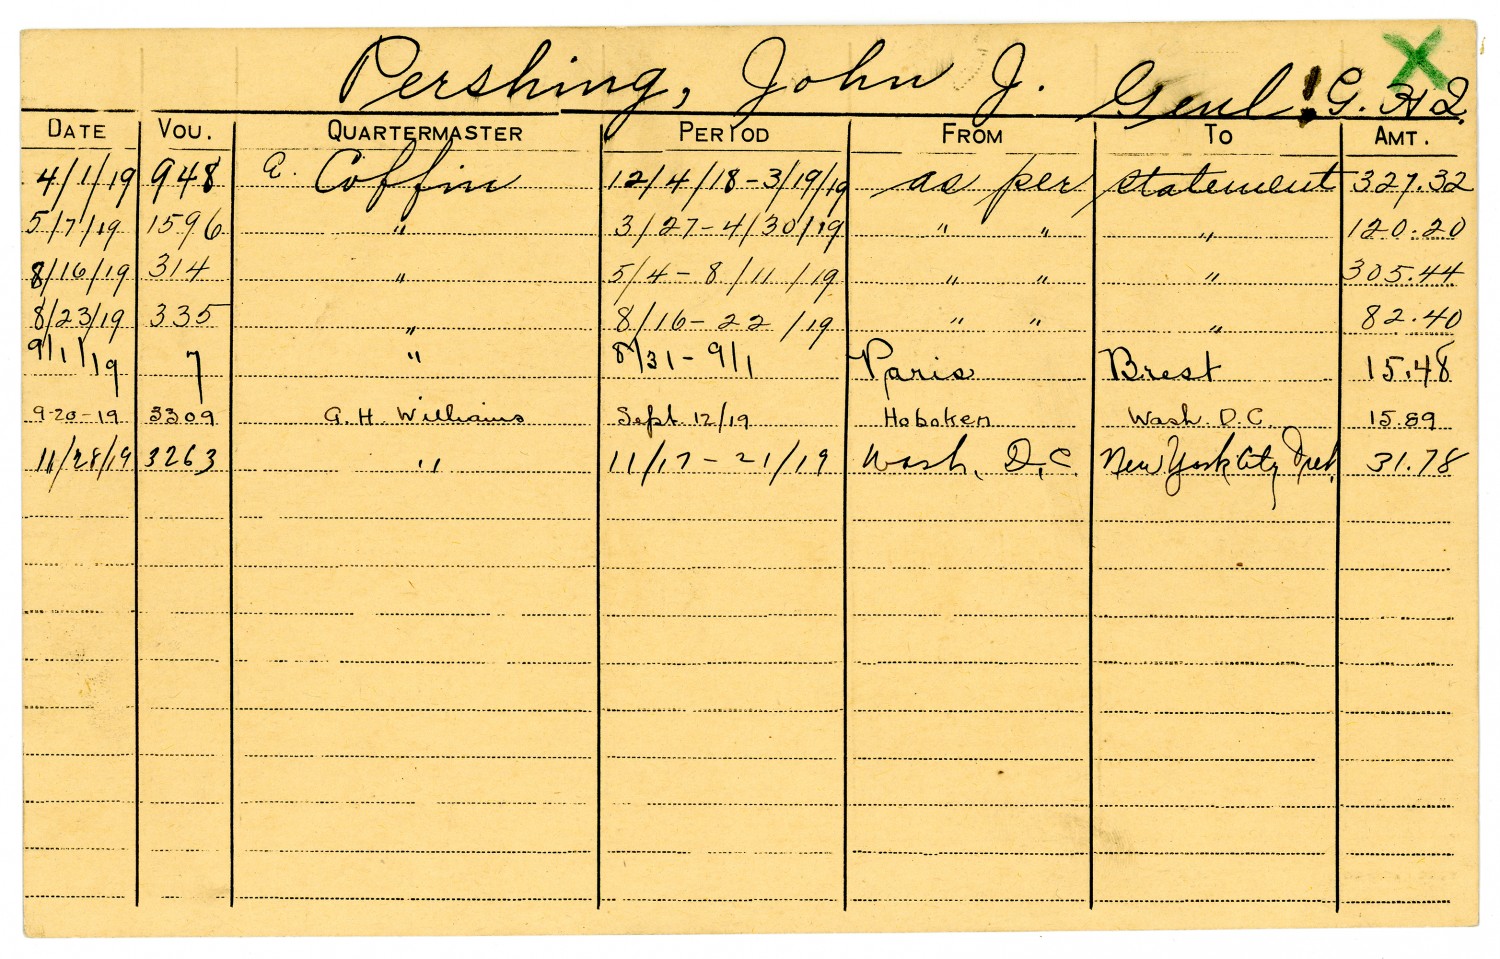 Pershing, John J. Genl. G.H.Q.
DATE VOU. QUARTERMASTER PERIOD FROM TO AMT.
4/1/19 948 a. Coffin 12/4/18-3/19/19 as per statement 327.32
5/7/19 1596 " 3/27-4/30/19 " " " 120.20
8/16/19 314 " 5/4-8/11/19 " " " 305.44
8/23/19 335 " 8/16-22/19 " " " 82.40
9/1/19 7 " 8/31-9/1 Paris Brest 15.48
9-20-19 3309 G.H. Williams Sept. 12/19 Hoboken Wash. D.C. 15.89
11/28/19 3263 " 11/17-21/19 Wash, D,C. New York City 31.78